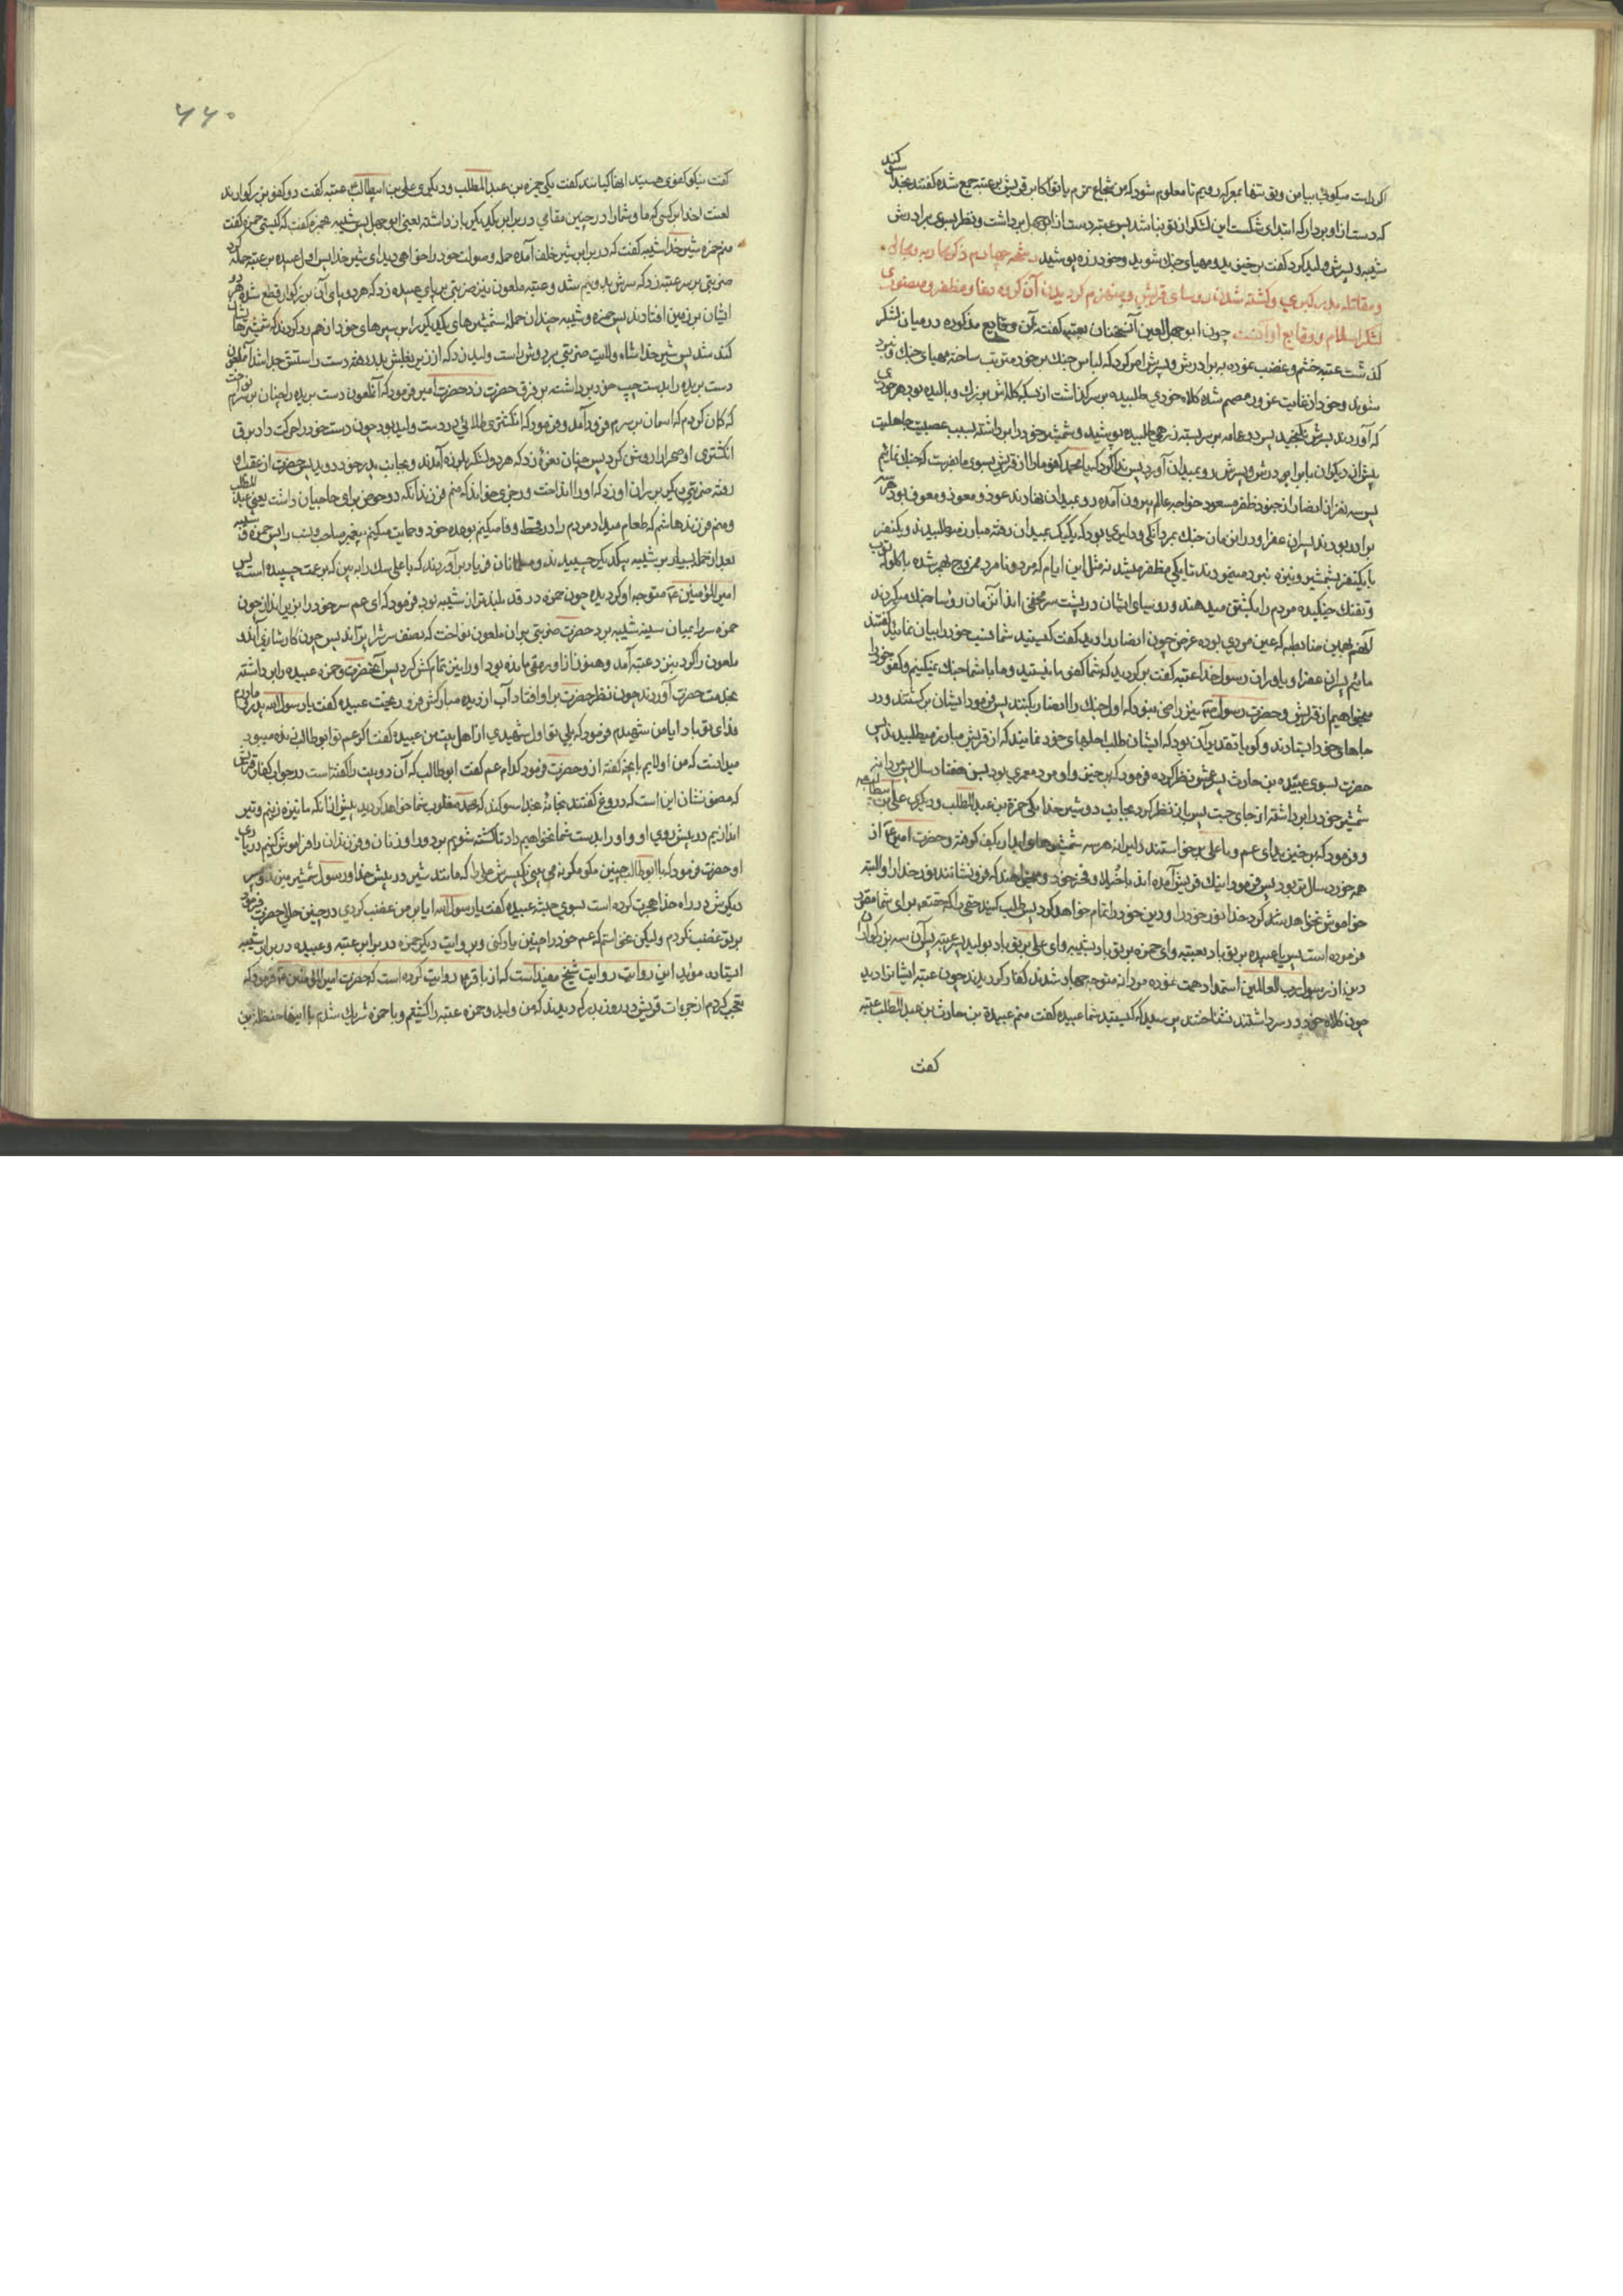 اگر راست میگوئی بیا من و تو تنها بمعرکه رویم تا معلوم شود که من شجاع ترم یا تو اکابر قریش بر عتبه جمع شده گفتند بخدا سوکند
که دست از او بردار که ابتدای شکست این لشکر از تو نباشد پس عتبه دست از ابوجهل برداشت و نظر بسوی برادرش
شیبه و پسرش ولید کرد گفت برخیزید و مهیای جنك شوید و خود زره پوشید رشحه چهارم در ذکر محاربه و مجادله
و مقاتله بدر کبری و کشته شدن روسای قریش و منهزم کردیدن آن کروه دغا و مظفر و منصوری
لشکر اسلام و وقایع اوانست چون ابوجهل لعین آن سخنان بعتبه کفت و آن وقایع مذکوره در میان لشکر
کذشت عتبه خشم و غضب نموده به برادرش و پسرش امر کرد که لباس جنك بر خود مرتب ساخته مهیای جنك و نبرد
شوند و خود از غایت غرور مصمم شده کلاه خودی طلبیده بر سر کذاشت از بسکه کله اش بزرك و بالیده بود هر خودی
که آوردند بسرش نکنجید پس دو عمامه بر سر بسته زرهی طلبیده پوشید و شمشیر خود را برداشته بسبب عصبیت جاهلیت
پیش از دیکران با برادرش و پسرش رو بمیدان آورد پس ندا کرد که یا محمد کفو ما را از قریش بسوی ما بفرست که جنك نمائیم
پس سه نفر از انصار از جنود ظفر مسعود خواجه عالم بیرون آمده رو بمیدان نهادند عوذ و معوذ و معوف بود هر سه
برادر بودند پسران عفرا و در این زمان جنك بمردانکی و دلیری بود که یکیك بمیدان رفته مبارز میطلبیدند و یکنفر
با یکنفر بشمشیر و نیزه نبرد مینمودند تا یکی مظفر میشد نه مثل این ایام که مرد و نامرد ممزوج بهم شده با کلوله توپ
و تفنك جنکیده مردم را بکشتن میدهند و روسای ایشان در پشت سر مخفی اند آن زمان روسا جنك میکردند
آنهم بهمین ضابطه که عین مردی بوده غرض چون انصار را دید کفت کیستید شما نسب خود را بیان نمائید کفتند
مائیم پسران عفرا و یاوران رسول خدا عتبه کفت برکردید که شما کفو ما نیستید و ما با شما جنك نمیکنیم و کفو خود را
میخواهیم از قریش و حضرت رسول نیز راضی نبود که اول جنك را انصار بکنند پس فرمود ایشان برکشتند و در
جاهای خود ایستادند و کویا تقدیر آن بود که ایشان طلب اجلهای خود نمایند که از قریش مبارز میطلبیدند پس
حضرت بسوی عبیده بن حارث پسر عمش نظر کرده فرمود که برخیز و او مرد معمری بود پس هفتاد سال پس مردانه
شمشیر خود را برداشته از جای جست پس باز نظر کرد بجانب دو شیر خدا یکی حمزة بن عبدالمطلب و دیکری علی بن ابیطالب
و فرمود که برخیز ای عم و یا علی برخواستند دلیرانه هر سه شمشیرهای آبدار بکف کرفته و حضرت امیر ع از
همه خورد سال تر بود پس فرمود اینك قریش آمده اند با خیلاء و فخر خود و میخواهند که فرو نشانند نور خدا را و البته
خواموش نخواهد شد کرد خدا نور خود را و دین خود را تمام خواهد کرد پس طلب کنید حقی را که حقتعالی برای شما مقرر
فرموده است پس یا عبیده بر تو باد بعتبه و ای حمزه بر تو باد بشیبه و ای علی بر تو باد بولید پسر عتبه پس آن سه بزرکوار
دین از رسول رب العالمین استمداد همت نموده مردانه متوجه جهاد شدند کفار کردیدند چون عتبه ایشانرا دید
چون کلاه خود در سر داشتند نشناختند پرسید که کیستید شما عبیده کفت منم عبیدة بن حارث بن عبدالمطلب عتبه
کفت
۴۴۰
کفت نیکو کفوی هستید اینها کیانند کفت یکی حمزه بن عبدالمطلب و دیکری علی بن ابیطالب عتبه کفت دو کفو بزرکوارند
لعنت خدا بر کسی که ما و شما را در چنین مقامی در برابر یکدیکر بازداشته یعنی ابوجهل پس شیبه بحمزه کفت که کیستی حمزه کفت
منم حمزه شیر خدا شیبه کفت که در برابر شیر خلف آمده حمله و صولت خود را خواهی دید ای شیر خدا پس اول عبیده بر عتبه حمله کرد
ضربتی بر سر عتبه زد که سرش بدو نیم شد و عتبه ملعون نیز ضربتی بر پای عبیده زد که هر دو پای آن بزرکوار قطع شد و هر دو
ایشان بر زمین افتادند پس حمزه و شیبه چندان حمله شمشیرهای یکدیکر بر سپرهای خود از هم رد کردند که شمشیرها شان
کند شد پس شیر خدا شاه ولایت ضربتی بر دوش راست ولید زد که از زیر بغلش بدر رفته دست راستش جدا شد آنملعون
دست بریده را بدست چپ خود برداشته بر فرق حضرت زد حضرت امیر فرمود که آنملعون دست بریده را چنان بر سرم نواخت
که کمان کردم که آسمان بر سرم فرود آمد و فرمود که انکشتری طلائی در دست ولید بود چون دست خود را حرکت داد برق
انکشتری او صحرا را روشن کرد پس چنان نعره زد که هر دو لشکر بلرزه آمدند و بجانب پدر خود دوید پس حضرت از عقب او
رفته ضربتی دیکر بر ران او زد که او را انداخت و رجزی خواند که منم فرزند آنکه دو حوض برای حاجیان داشت یعنی عبدالمطلب
و منم فرزند هاشم که طعام میداد مردم را در قحط و وفا میکنم بوعده خود و حمایت میکنم پیغمبر صاحب حسب را پس حمزه و شیبه
بعد از حمله بسیار بر شیبه بیکدیکر چسبیدند و مسلمانان فریاد برآوردند که یا علی سك را ببین که بر عمت چسبیده است پس
امیرالمؤمنین ع متوجه او کردیده چون حمزه در قد بلندتر از شیبه بود فرمود که ای عم سر خود را بزیر انداز چون
حمزه سر را بمیان سینه شیبه برد حضرت ضربتی بر آن ملعون نواخت که نصف سرش را پرانید پس چون کار شان آن دو
ملعون را کرد بنزد عتبه آمد و هنوز از او رمقی مانده بود او را نیز تمام کش کرد پس آنحضرت و حمزه عبیده را برداشته
بخدمت حضرت آوردند چون نظر حضرت بر او افتاد آب از دیده مبارکش فرو ریخت عبیده کفت یا رسول الله پدر و مادرم
فدای تو باد ایا من شهیدم فرمود که بلی تو اول شهیدی از اهل بیت من عبیده کفت اکر عم تو ابوطالب زنده میبود
میدانست که من اولایم بانچه کفته از و حضرت فرمود کدام عم کفت ابوطالب که آن دو بیت را کفته است در جواب کفار قریش
که مضمونشان این است که دروغ کفتند بخانه خدا سوکند که محمد مغلوب شما خواهد کردید پیش از آنکه ما نیزه زنیم و تیر
اندازیم در پیش روی او و او را بدست شما نخواهیم داد تا کشته شویم بر دور او و زنان و فرزندان را فراموش کنیم در یاری
او حضرت فرمود که با ابوطالب چنین مکو مکر نمی بینی یکپسرش علی را که مانند شیر در پیش خدا و رسول شمشیر میزند و پسر
دیکرش در راه خدا هجرت کرده است بسوی حبشه عبیده کفت یا رسول الله ایا بر من غضب کردی در چنین حالی حضرت فرمود
بر تو غضب نکردم ولیکن نخواستم که عم خود را چنین یاد کنی و بروایت دیکر حمزه در برابر عتبه و عبیده در برابر شیبه
ایستاده مؤید این روایت روایت شیخ مفید است که از باقر ع روایت کرده است که حضرت امیرالمؤمنین ع فرمود که
تعجب کردم از جرءات قریش در روز بدر که دیدند که من ولید و حمزه عتبه را کشتیم و با حمزه شریك شدم با اینها حنظله بن